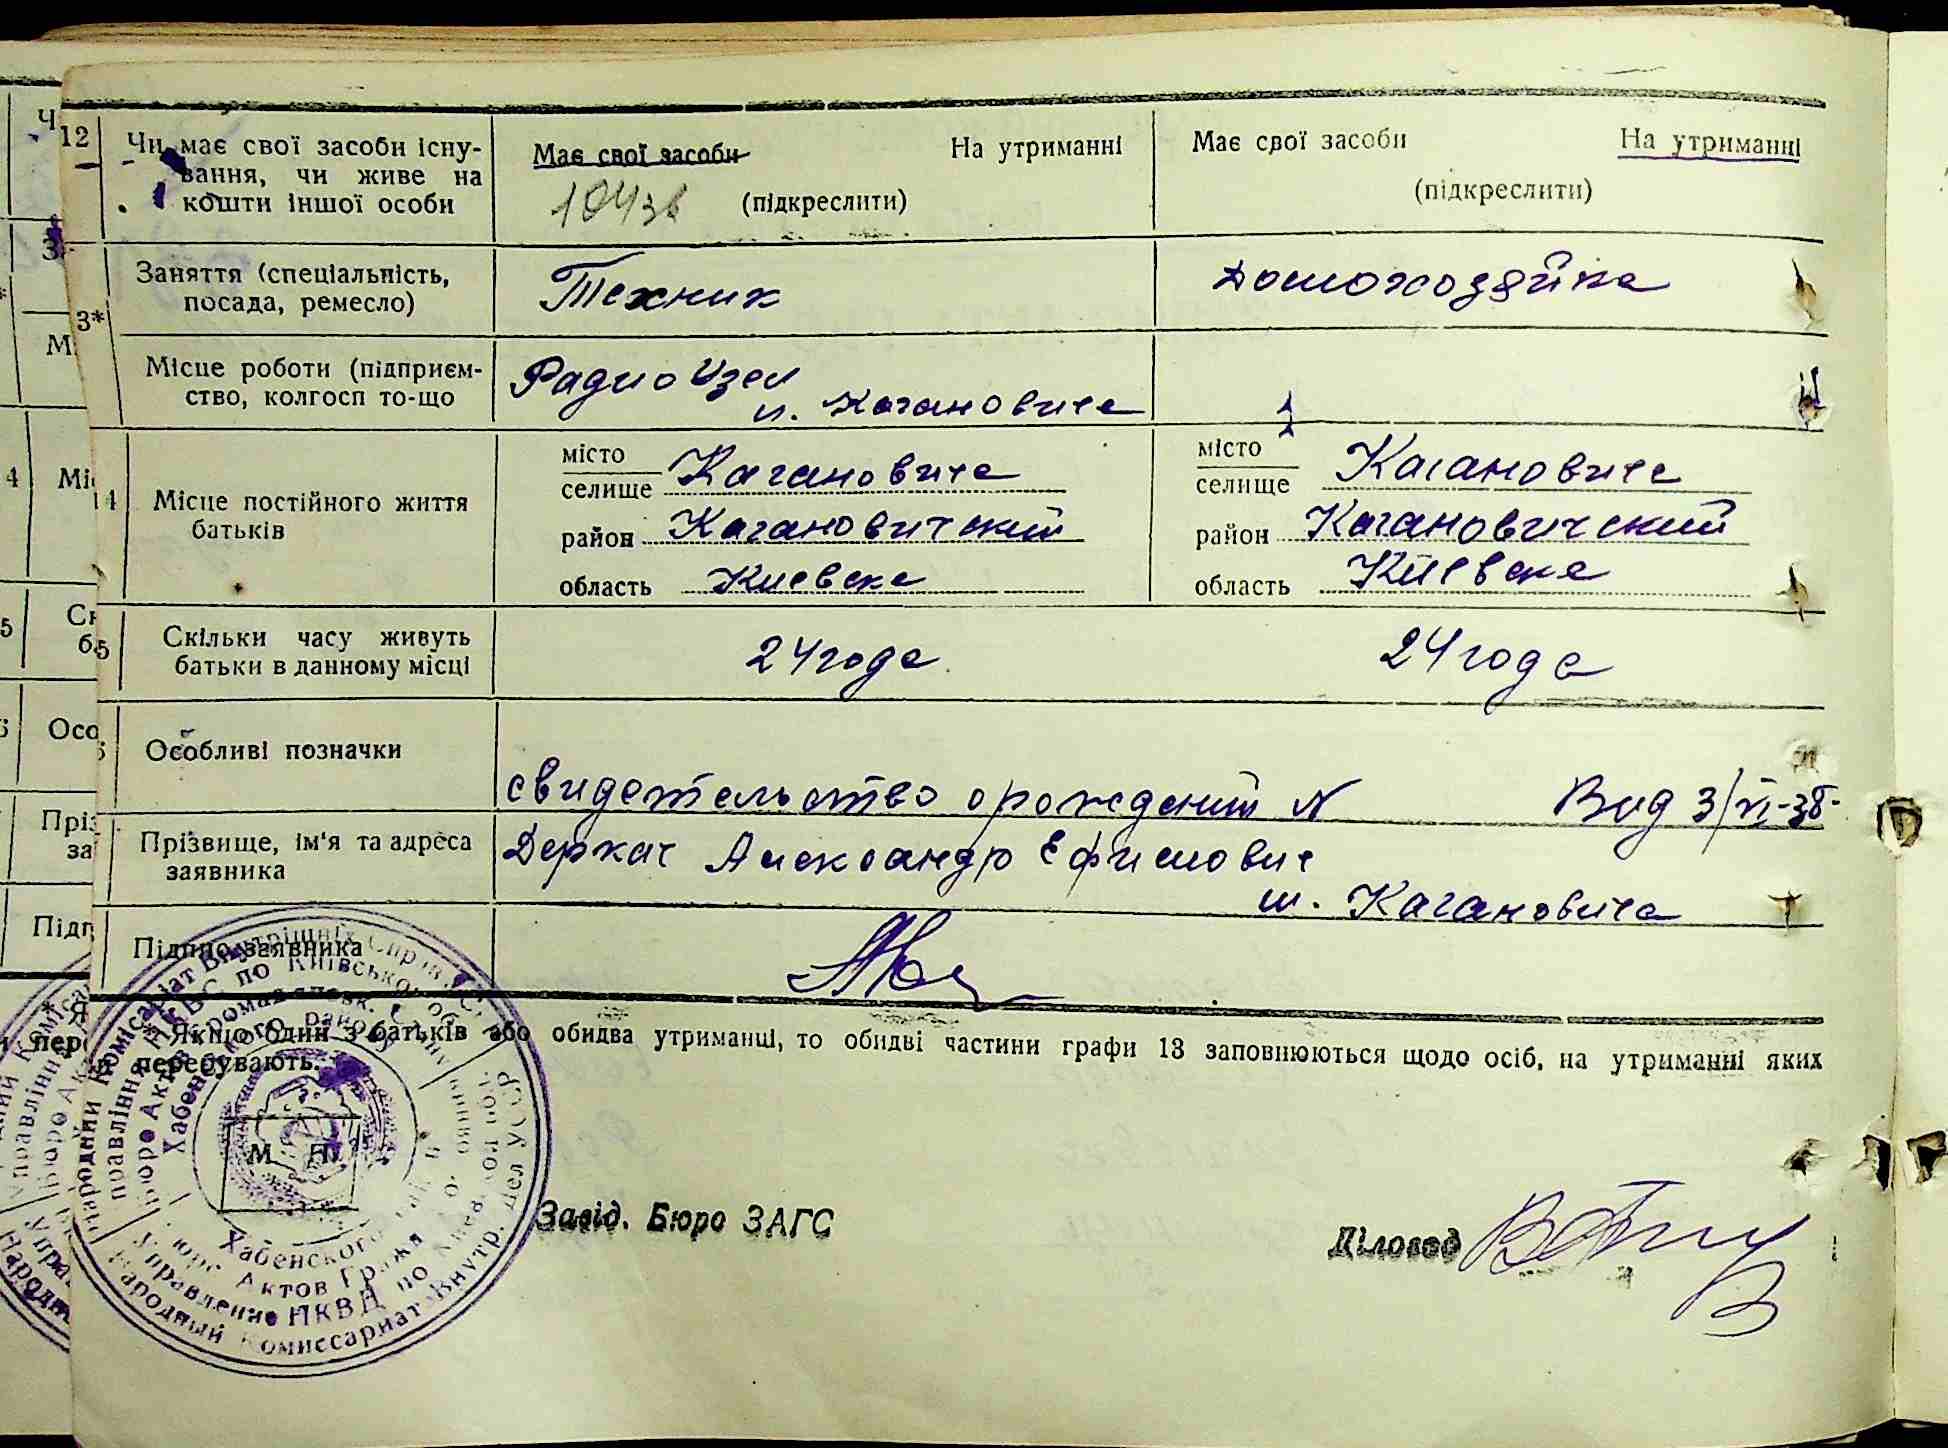 12
Чи має свої засоби існування, чи живе на кошти іншої особи
Має свої засоби На утриманні
(підкреслити)
Має свої засоби На утриманні
(підкреслити)
3*
Заняття (спеціальність,
посада, ремесло)
Техник
Домохозяйка
Місце роботи (підприєм-
ство, колгосп то-що
Радио Узел
п. Кагановича
14
Місце постійного життя
батьків
місто
селище Кагановича
район Кагановичский
область Киевска
місто
селище Кагановича
район Кагановичский
область Киевска
5
Скільки часу живуть
батьки в данному місці
24 года
24 года
Особливі позначки
свидетельство о рождений N Вид 3/VI-38-
Прізвище, ім'я та адреса
заявника
Деркач Александр Ефимович
м. Кагановича
Підпис заявника
Якщо один з батьків або обидва утриманці, то обидві частини графи 13 заповнюються щодо осіб, на утриманні яких
перебувають.
М П
Хабенского
Актов Гражд
Управление НКВД по
Народный Комиссариат Внутр. Дел УССР
Завід. Бюро ЗАГС
Діловод